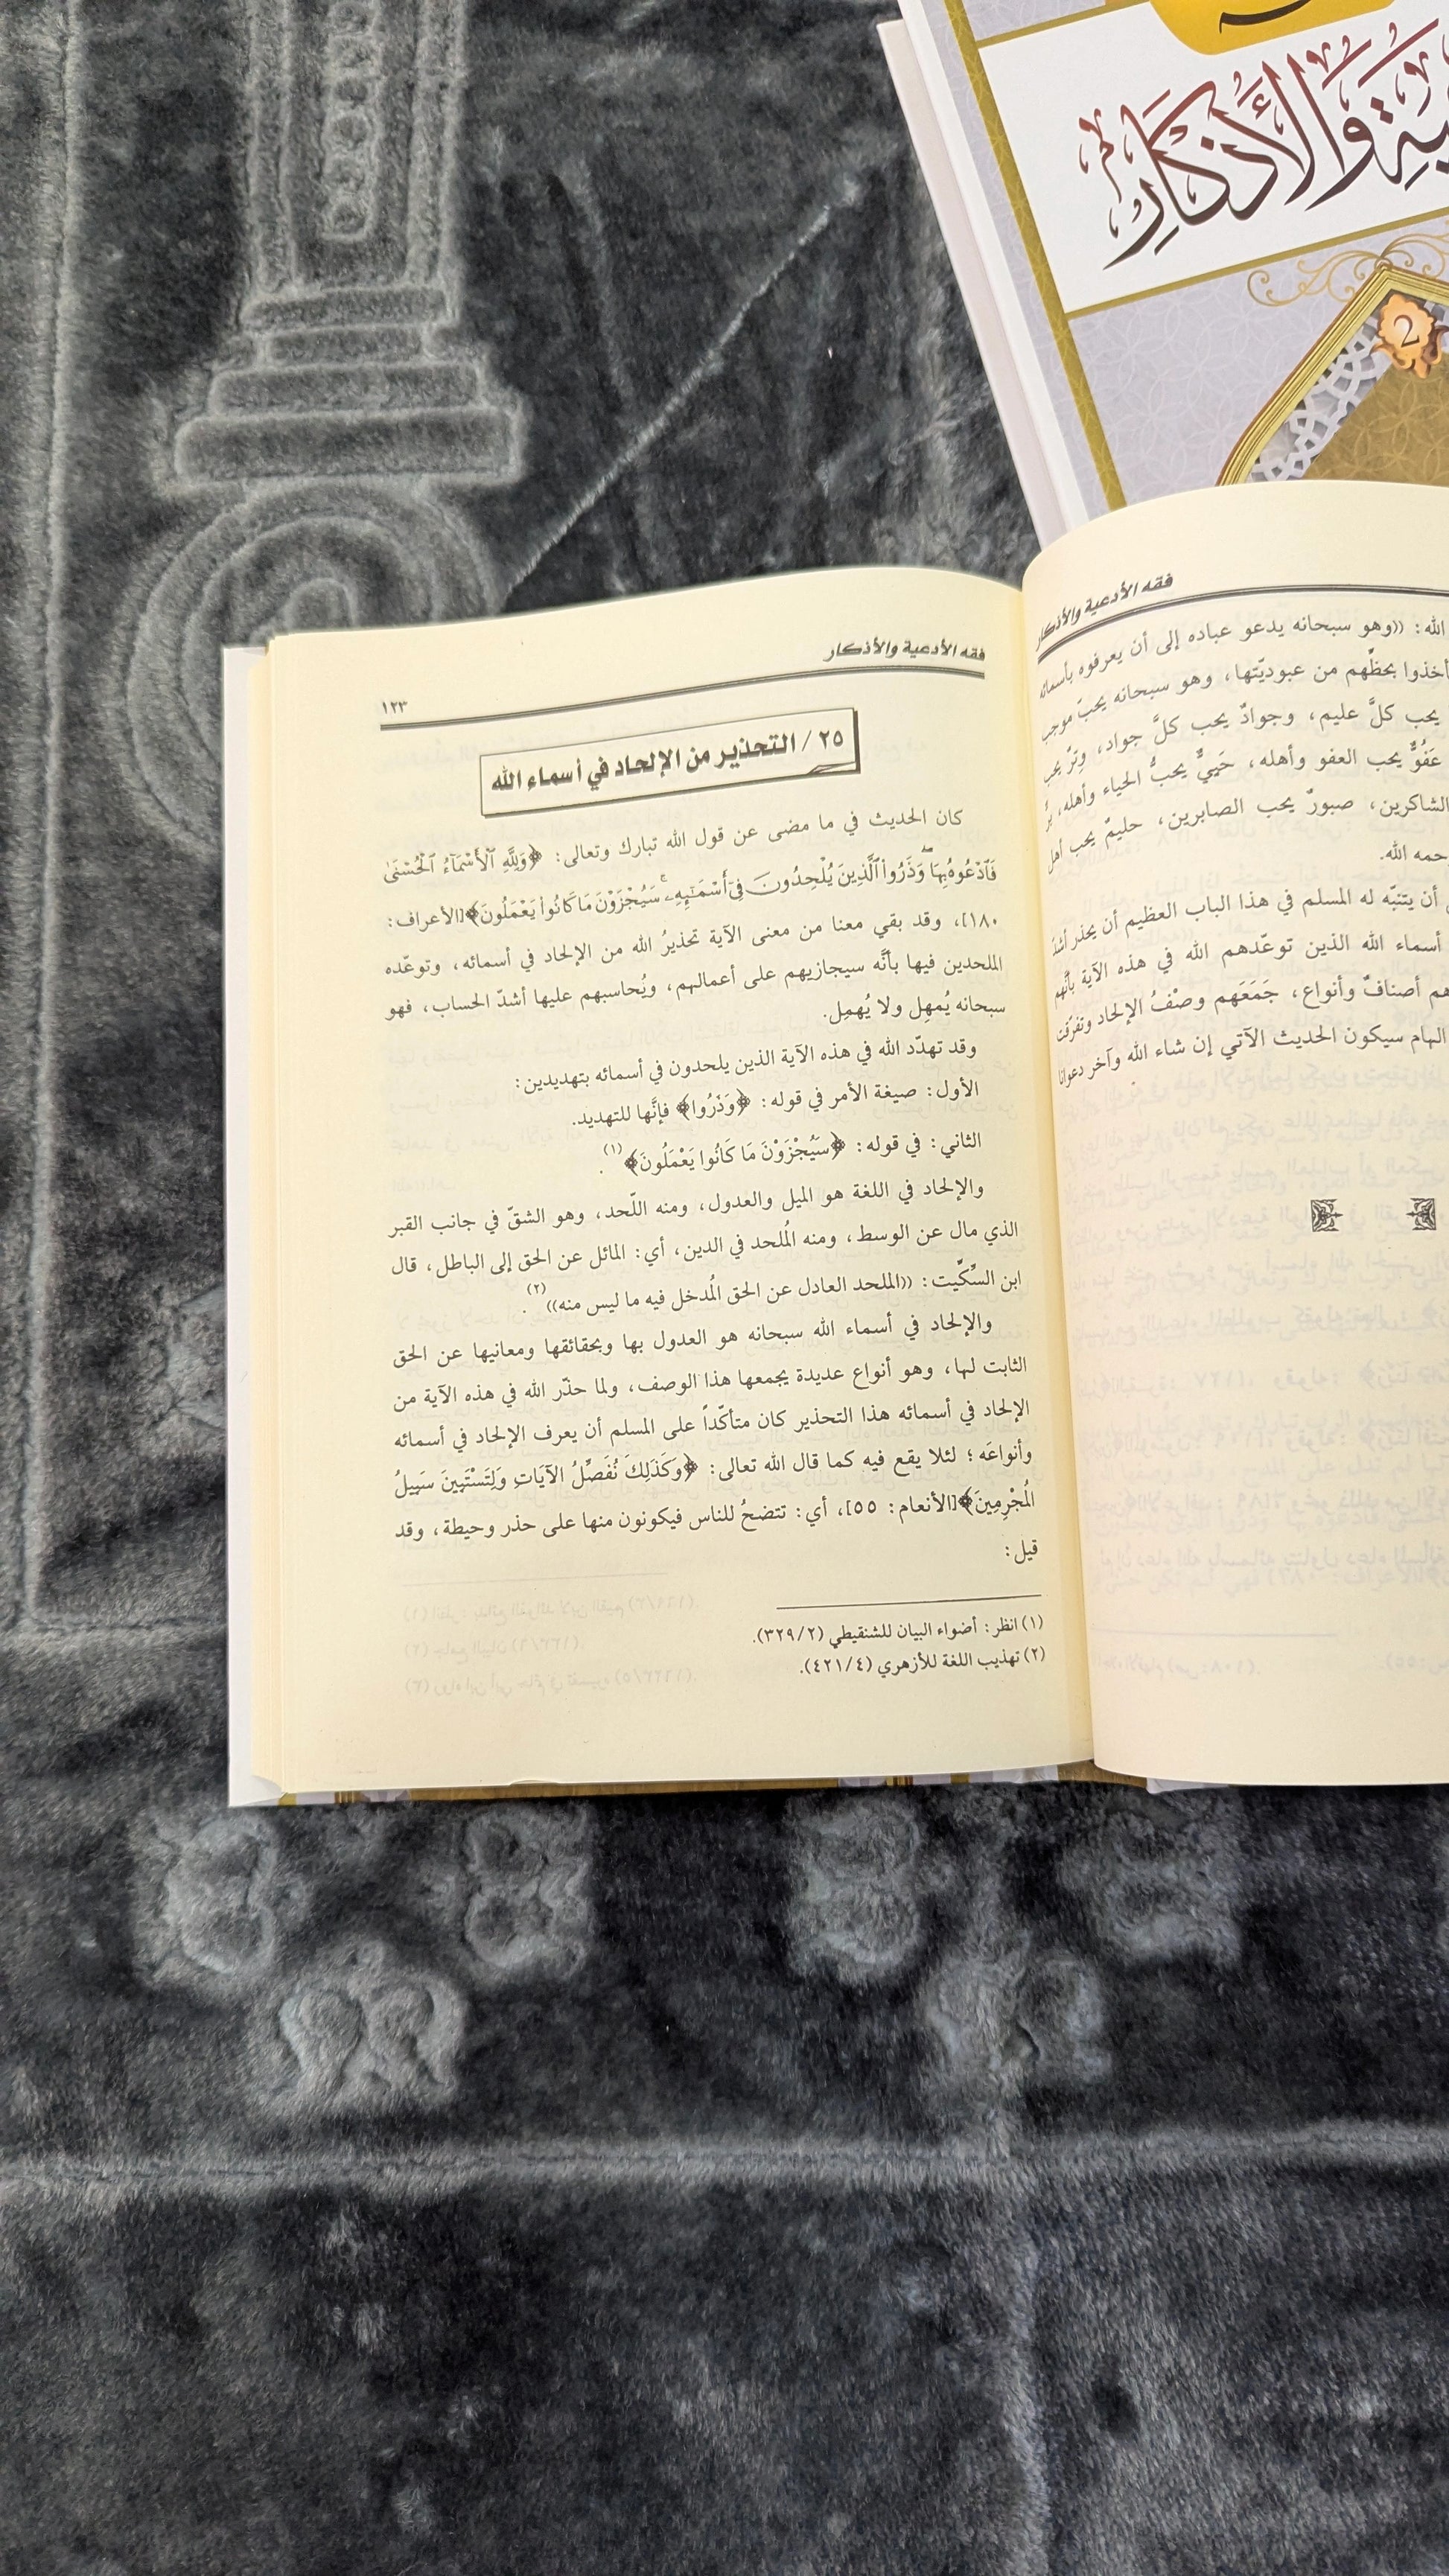 بةِ وَالأَذْكَارِ
2
فقه الأدعية والأذكار
الله: ((وهو سبحانه يدعو عباده إلى أن يعرفوه بأسمائه
أخذوا بحظّهم من عبوديّتها، وهو سبحانه يحبّ موجب
يحب كلَّ عليم، وجوادٌ يحب كلَّ جواد، وِترٌ يحب
عَفُوٌّ يحب العفو وأهله، حَييٌّ يحبُّ الحياء وأهله، برٌّ
الشاكرين، صبورٌ يحب الصابرين، حليمٌ يحب أهل
حمه الله.
أن يتنبّه له المسلم في هذا الباب العظيم أن يحذر أشدّ
أسماء الله الذين توعّدهم الله في هذه الآية بأنَّهم
هم أصنافٌ وأنواع، جَمَعَهم وصْفُ الإلحاد وتفرّقت
الهام سيكون الحديث الآتي إن شاء الله وآخر دعوانا
فقه الأدعية والأذكار
١٢٣
٢٥ / التحذير من الإلحاد في أسماء الله
كان الحديث في ما مضى عن قول الله تبارك وتعالى: ﴿وَلِلَّهِ ٱلْأَسْمَآءُ ٱلْحُسْنَىٰ
فَٱدْعُوهُ بِهَا ۖ وَذَرُوا۟ ٱلَّذِينَ يُلْحِدُونَ فِىٓ أَسْمَـٰٓئِهِۦ ۚ سَيُجْزَوْنَ مَا كَانُوا۟ يَعْمَلُونَ﴾[الأعراف:
١٨٠]، وقد بقي معنا من معنى الآية تحذيرُ الله من الإلحاد في أسمائه، وتوعّده
الملحدين فيها بأنَّه سيجازيهم على أعمالهم، ويُحاسبهم عليها أشدّ الحساب، فهو
سبحانه يُمهِل ولا يُهمِل.
وقد تهدّد الله في هذه الآية الذين يلحدون في أسمائه بتهديدين:
الأول: صيغة الأمر في قوله: ﴿وَذَرُوا﴾ فإنَّها للتهديد.
الثاني: في قوله: ﴿سَيُجْزَوْنَ مَا كَانُوا يَعْمَلُونَ﴾(١).
والإلحاد في اللغة هو الميل والعدول، ومنه اللّحد، وهو الشقّ في جانب القبر
الذي مال عن الوسط، ومنه المُلحد في الدين، أي: المائل عن الحق إلى الباطل، قال
ابن السِّكِّيت: ((الملحد العادل عن الحق المُدخل فيه ما ليس منه))(٢).
والإلحاد في أسماء الله سبحانه هو العدول بها وبحقائقها ومعانيها عن الحق
الثابت لها، وهو أنواع عديدة يجمعها هذا الوصف، ولما حذّر الله في هذه الآية من
الإلحاد في أسمائه هذا التحذير كان متأكّداً على المسلم أن يعرف الإلحاد في أسمائه
وأنواعَه؛ لئلا يقع فيه كما قال الله تعالى: ﴿وَكَذَلِكَ نُفَصِّلُ الآيَاتِ وَلِتَسْتَبِينَ سَبِيلُ
المُجْرِمِينَ﴾[الأنعام: ٥٥]، أي: تتضحُ للناس فيكونون منها على حذر وحيطة، وقد
قيل:
(١) انظر: أضواء البيان للشنقيطي (٣٢٩/٢).
(٢) تهذيب اللغة للأزهري (٤٢١/٤).